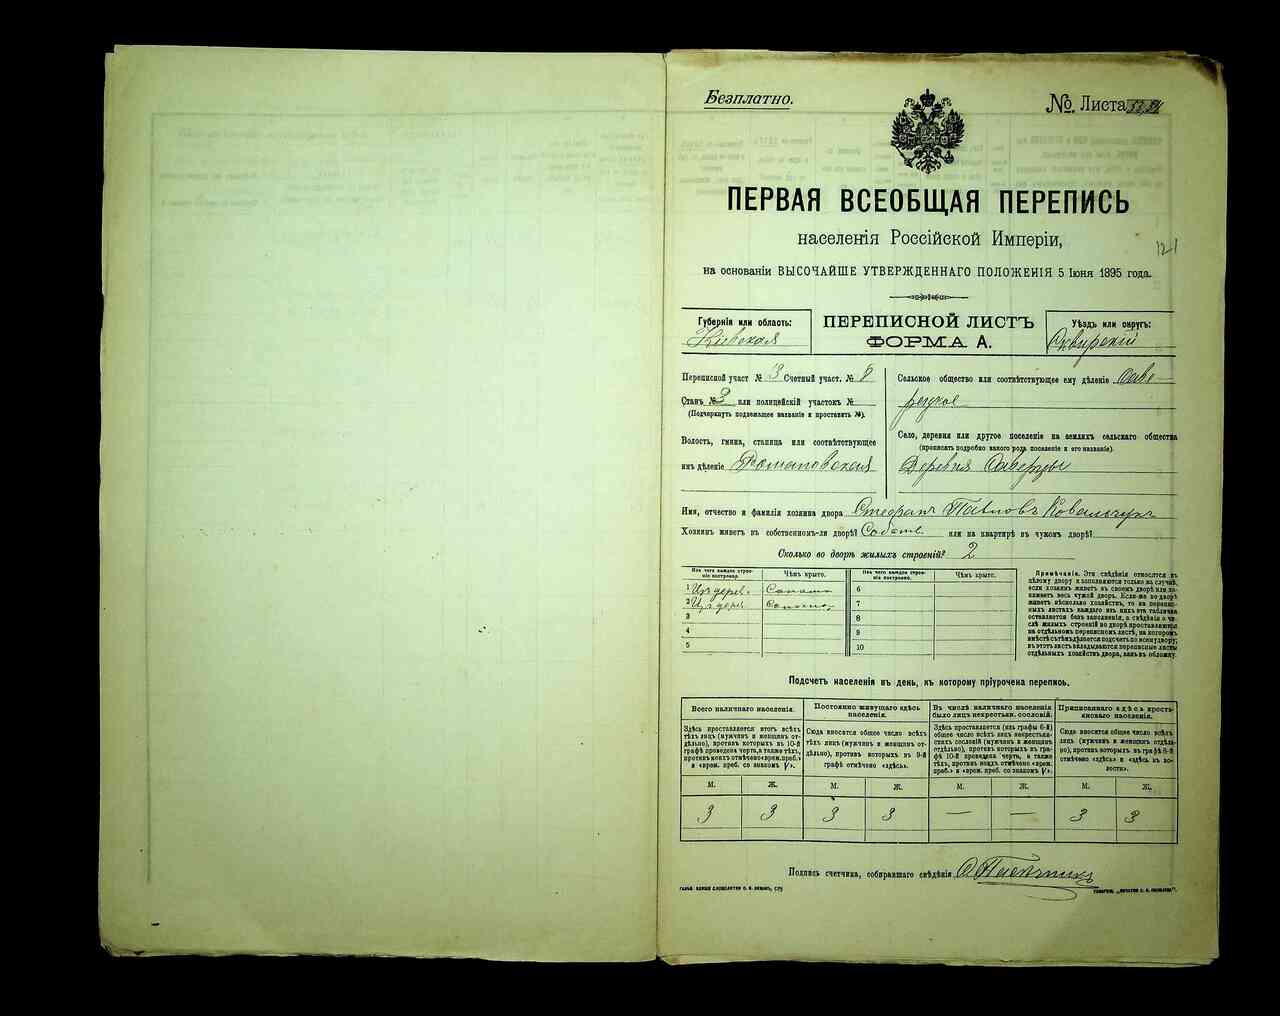 Безплатно.
№ Листа
ПЕРВАЯ ВСЕОБЩАЯ ПЕРЕПИСЬ
населенія Россійской Имперіи,
121
на основаніи ВЫСОЧАЙШЕ УТВЕРЖДЕННАГО ПОЛОЖЕНІЯ 5 Іюня 1895 года.
Губернія или область:
Кіевская
ПЕРЕПИСНОЙ ЛИСТЪ
ФОРМА А.
Уѣздъ или округъ:
Сквирскій
Переписной участ № 3 Счетный участ. № 8
Станъ № 3 или полицейскій участокъ №
(Подчеркнуть подлежащее названіе и проставить №).
Волость, гмина, станица или соотвѣтствующее
имъ дѣленіе Романовская
Сельское общество или соотвѣтствующее ему дѣленіе Саве-
рецкое
Село, деревня или другое поселеніе на земляхъ сельскаго общества
(прописать подробно какого рода поселеніе и его названіе).
Деревня Саверцы
Имя, отчество и фамилія хозяина двора Стефанъ Павловъ Ковальчукъ
Хозяинъ живетъ въ собственномъ-ли дворѣ? Собств. или на квартирѣ въ чужомъ дворѣ?
Сколько во дворѣ жилыхъ строеній? 2
Изъ чего каждое строеніе построено. Чѣмъ крыто. Изъ чего каждое строеніе построено. Чѣмъ крыто.
1 Изъ дерев. Солома 6
2 Изъ дерев Солома 7
3 8
4 9
5 10
Примѣчаніе. Эти свѣдѣнія относятся къ
цѣлому двору и заполняются только на случай,
если хозяинъ живетъ въ своемъ дворѣ или занимаетъ весь чужой дворъ. Если-же во дворѣ
живетъ нѣсколько хозяйствъ, то на переписныхъ листахъ каждаго изъ нихъ эта табличка
оставляется безъ заполненія, а свѣдѣнія о числѣ жилыхъ строеній во дворѣ проставляются
на отдѣльномъ переписномъ листѣ, на которомъ
вмѣстѣ съ тѣмъ дѣлается подсчетъ по всему двору;
въ этотъ листъ вкладываются переписные листы
отдѣльныхъ хозяйствъ двора, какъ въ обложку.
Подсчетъ населенія въ день, къ которому пріурочена перепись.
Всего наличнаго населенія.
Здѣсь проставляется итогъ всѣхъ
тѣхъ лицъ (мужчинъ и женщинъ отдѣльно), противъ которыхъ въ 10-й
графѣ проведена черта, а также тѣхъ,
противъ коихъ отмѣчено «врем. преб.»
и «врем. преб. со знакомъ V».
Постоянно живущаго здѣсь
населенія.
Сюда вносится общее число всѣхъ
тѣхъ лицъ (мужчинъ и женщинъ отдѣльно), противъ которыхъ въ 9-й
графѣ отмѣчено «здѣсь».
Въ числѣ наличнаго населенія
было лицъ некрестьян. сословій.
Здѣсь проставляется (изъ графы 6-й)
общее число всѣхъ лицъ некрестьянскихъ сословій (мужчинъ и женщинъ
отдѣльно), противъ которыхъ въ графѣ 10-й проведена черта, а также
тѣхъ, противъ коихъ отмѣчено «врем.
преб.» и «врем. преб. со знакомъ V».
Приписаннаго здѣсь крестьянскаго населенія.
Сюда вносится общее число всѣхъ
лицъ (мужчинъ и женщинъ отдѣльно), противъ которыхъ въ графѣ 8-й
отмѣчено «здѣсь» и «здѣсь въ волости».
М. Ж. М. Ж. М. Ж. М. Ж.
3 3 3 3 — — 3 3
Подпись счетчика, собиравшаго свѣдѣнія